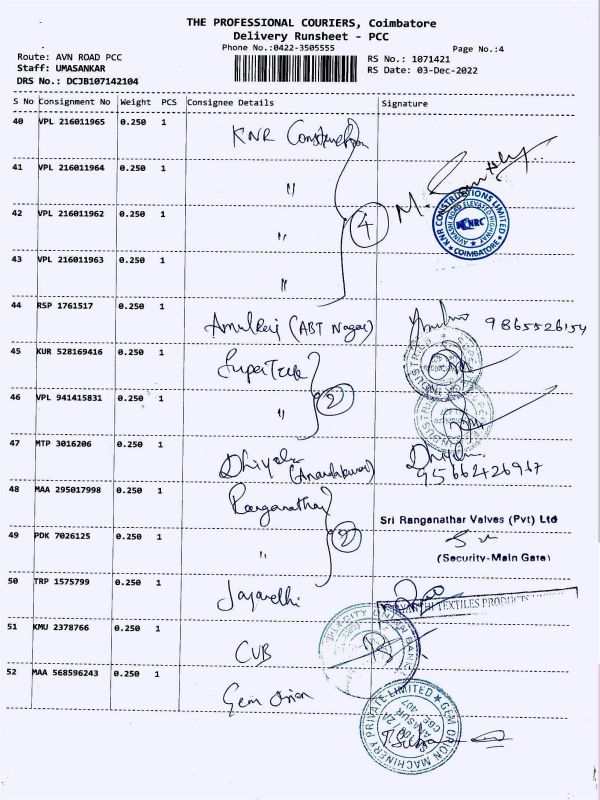 THE PROFESSIONAL COURIERS, Coimbatore
Delivery Runsheet - PCC
Phone No.:0422-3505555
Page No.:4
Route: AVN ROAD PCC
RS No.: 1071421
Staff: UMASANKAR
RS Date: 03-Dec-2022
DRS No.: DCJB107142104
S No Consignment No Weight PCS Consignee Details Signature
40 VPL 216011965 0.250 1 KNR Construction
41 VPL 216011964 0.250 1 "
42 VPL 216011962 0.250 1 " 4
KNR CONSTRUCTIONS LIMITED
AVINASHI ROAD ELEVATED HIGHWAY
KNRC
COIMBATORE
43 VPL 216011963 0.250 1 "
44 RSP 1761517 0.250 1 Amulraj (ABT Nagar) 9865526154
45 KUR 528169416 0.250 1 SuperTek
46 VPL 941415831 0.250 1 " 2
47 MTP 3016206 0.250 1 Dhiyaly 9566426967
48 MAA 295017998 0.250 1 Ranganathar
Sri Ranganathar Valves (Pvt) Ltd
49 PDK 7026125 0.250 1 " 2
(Security-Main Gate)
50 TRP 1575799 0.250 1
TEXTILES PRODUCTS
51 KMU 2378766 0.250 1 CUB
CITY UNION BANK
52 MAA 568596243 0.250 1 Gem Orion
GEM ORION MACHINERY PRIVATE LIMITED
ARASUR
CBE 407